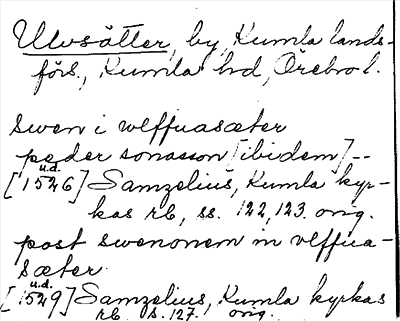 Ulvsätter, by, Kumla lands-
förs., Kumla hd, Örebro l.
swen i wlffuasæter
peder sonasson [ibidem] --
u.d.
[1526] Samzelius, Kumla kyr-
kas rb, ss. 122, 123. orig.
post swenonem in vlffua-
sæter
u.d.
[1529] Samzelius, Kumla kyrkas
rb, s. 127., orig.